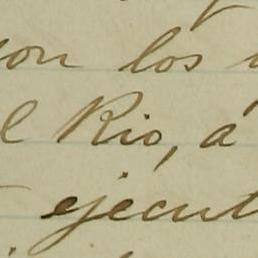 son los
el Rio, á
ejecut